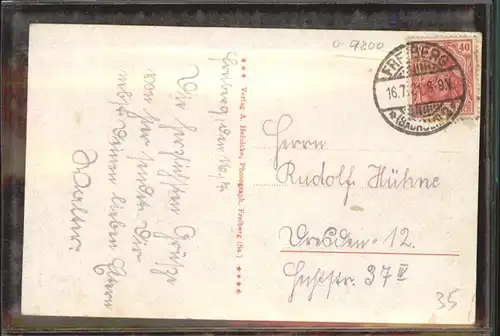 o-9200
40
FREIBERG
16.7.21. 8-9V.
*(SACHSEN)
Freiberg, den 16./7.
Die herzlichsten Grüße
von hier sendet Dir
nebst Deinen lieben Eltern
Walter.
*** Verlag A. Heinicke, Photograph, Freiberg (Sa.) ****
Herrn
Rudolf Hühne
Dresden-12.
Hechtstr. 37 IV
35